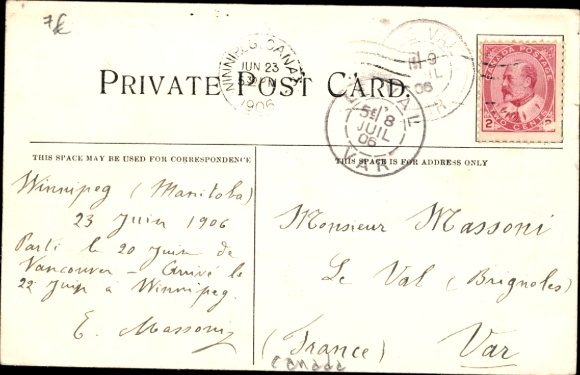 7f
WINNIPEG, CANADA
JUN 23
1906
LE VAL
9
JUIL
06
VAR
CANADA POSTAGE
2 TWO CENTS 2
PRIVATE POST CARD.
LE VAL
5E 8
JUIL
06
VAR
THIS SPACE MAY BE USED FOR CORRESPONDENCE
THIS SPACE IS FOR ADDRESS ONLY
Winnipeg (Manitoba)
23 Juin 1906
Parti le 20 Juin de
Vancouver – Arrivé le
22 Juin à Winnipeg.
E. Massoni
Monsieur Massoni
Le Val (Brignoles)
(France) Var
Canada